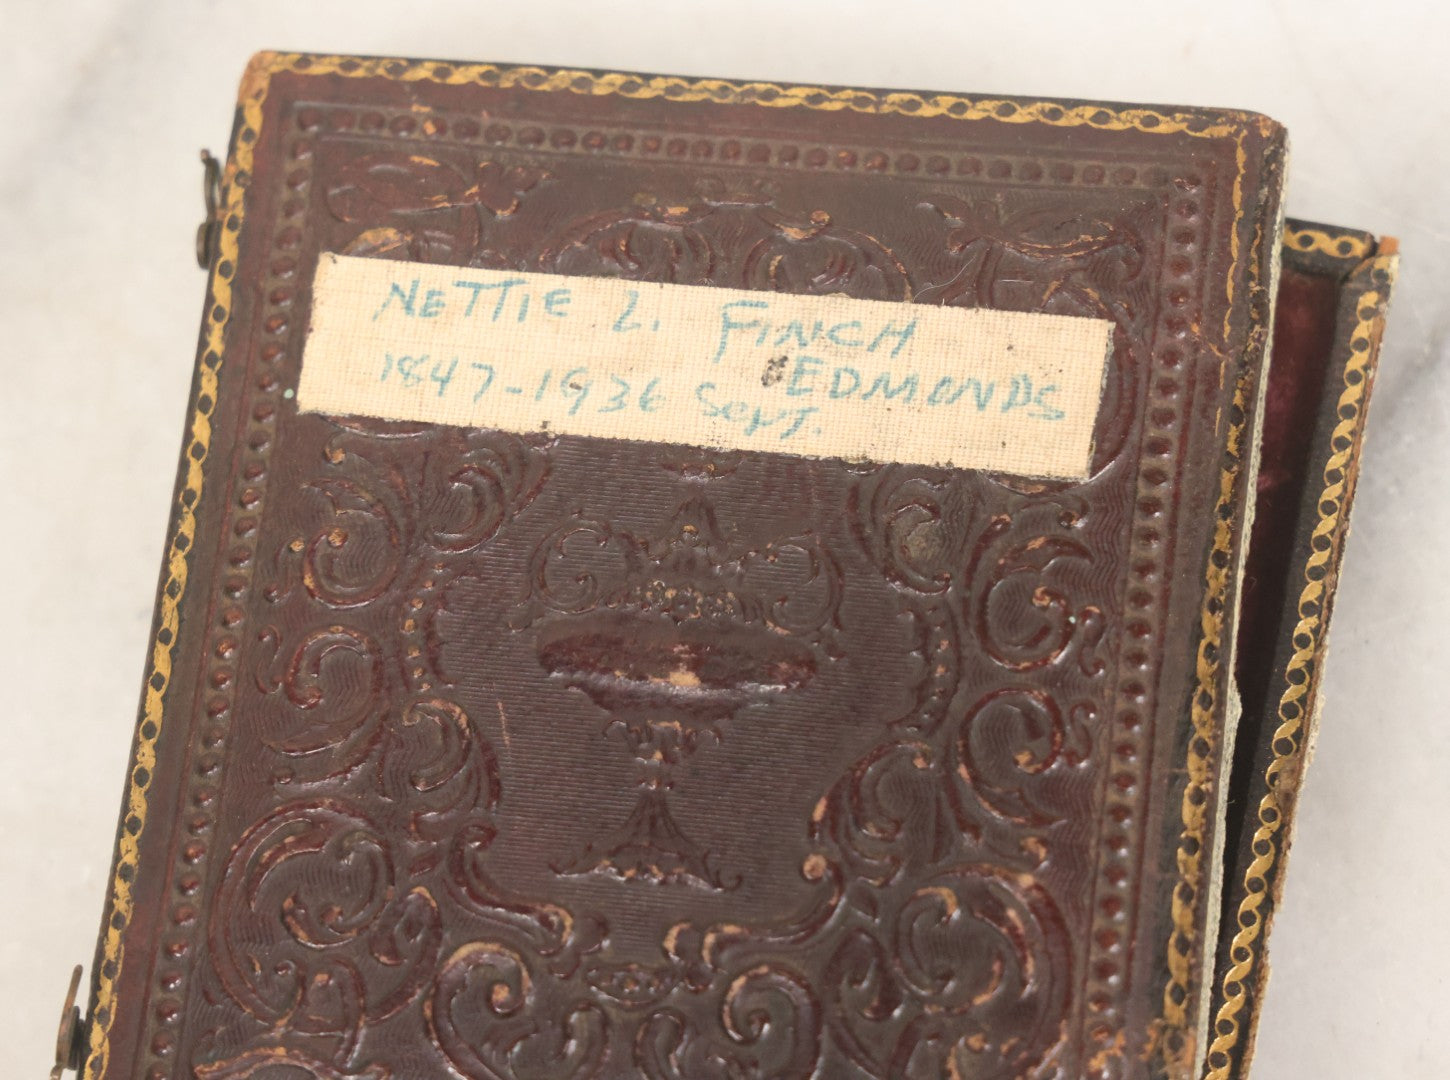 NETTIE L. FINCH
EDMONDS
1847-1936 Sept.